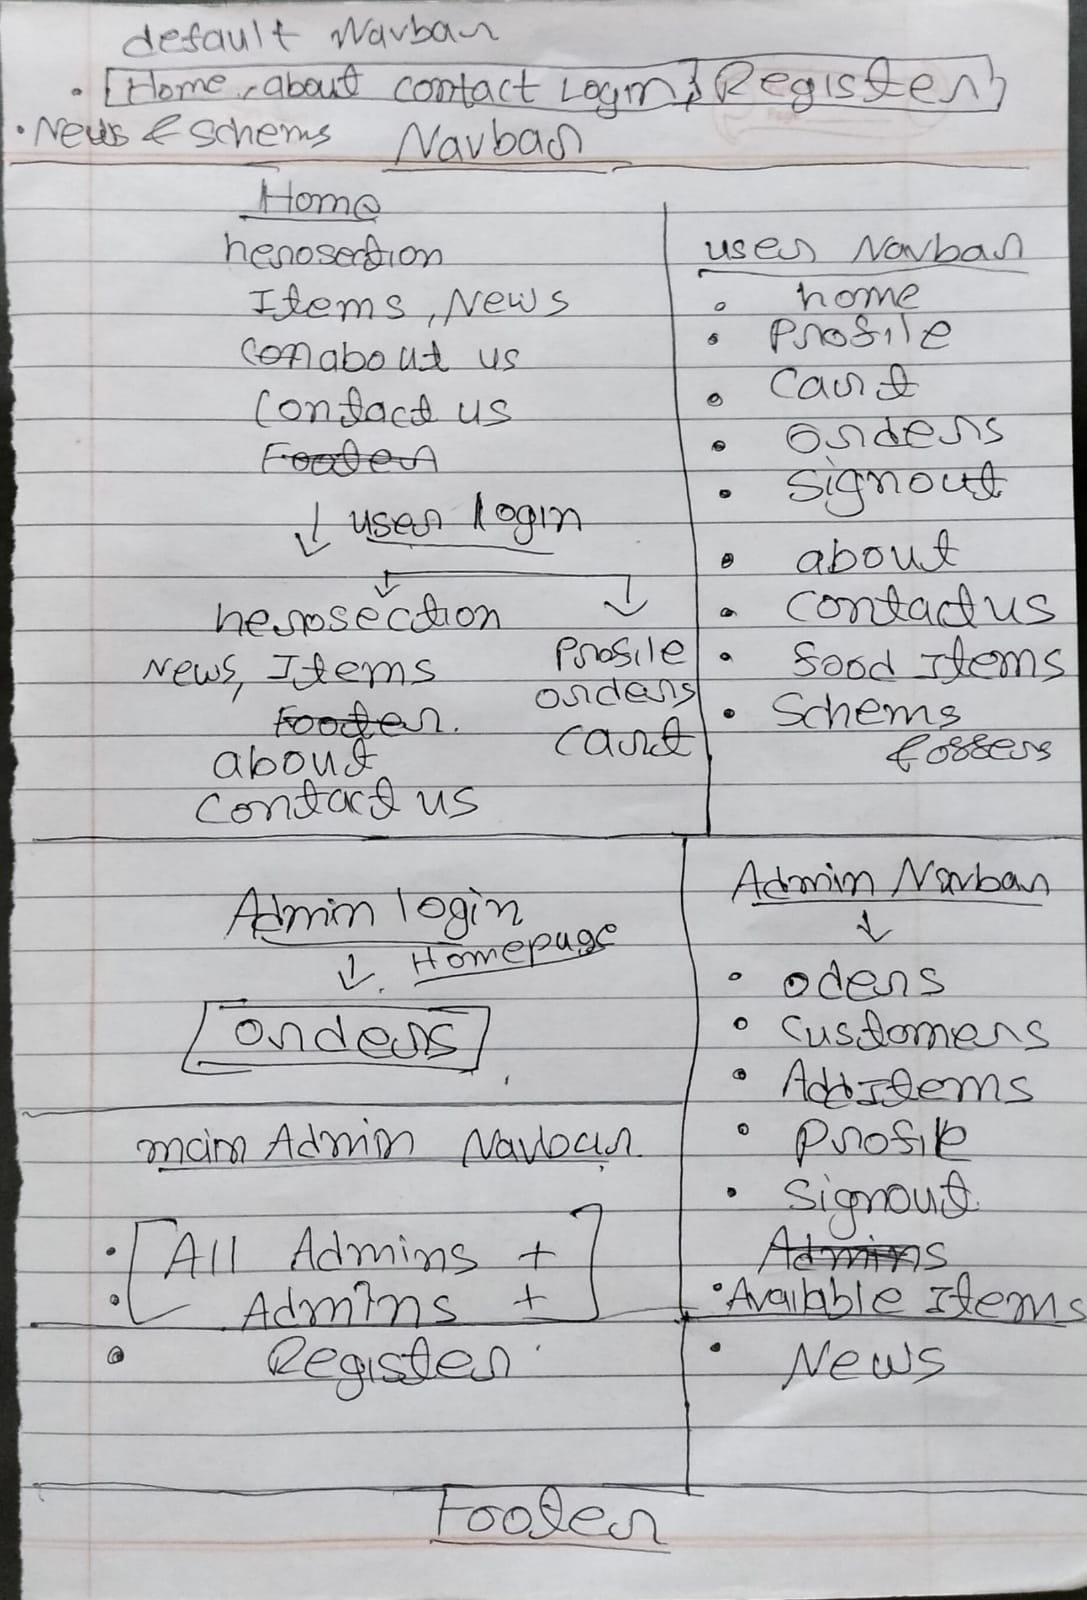 default Navbar
• [Home, about contact Login] Register]
• News & Schems Navbar
Home
herosection
Items, News
con about us
Contact us
Footer
↓ user login
herosection
News, Items
Footer.
about
Contact us
Profile
orders
cart
user Navbar
• home
• Profile
• Cart
• Orders
• Signout
• about
• Contact us
• food Items
• Schems
& offers
Admin login
↓. Homepage
orders
Admin Navbar
↓
• oders
• Customers
• Add Items
• Profile
• Signout
Admins
• Available Items
• News
main Admin Navbar
• [All Admins +
• Admins + ]
• Register
Footer